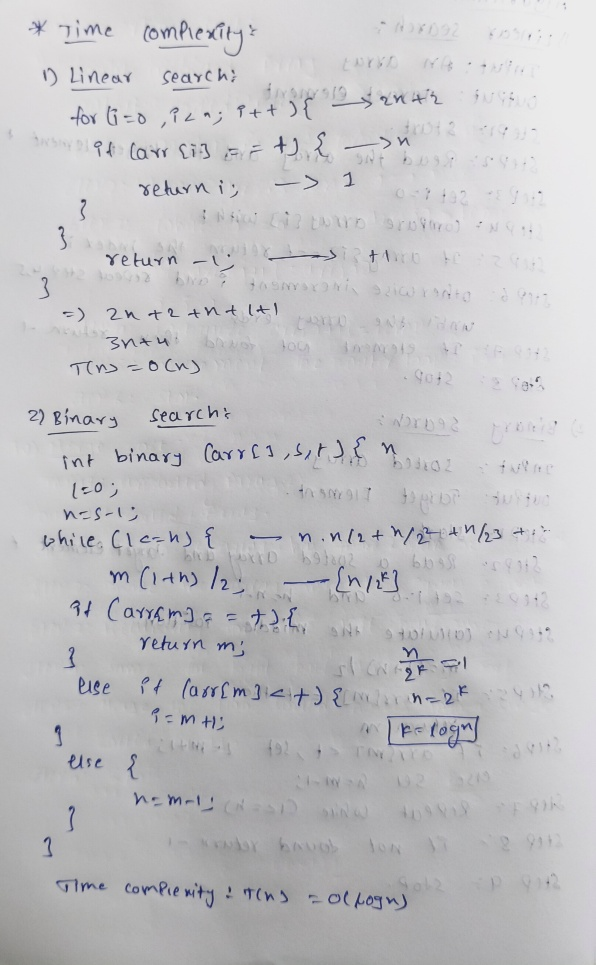 * Time complexity:
1) Linear search:
for (i=0, i<n; i++){ → 2n+2
if (arr[i] == t) { → n
return i; → 1
}
}
return -1; → +1
}
=) 2n+2+n+1+1
3n+4
T(n) = O(n)
2) Binary search:
int binary (arr[], s, t) { n
l=0;
h=s-1;
while (l<=h) { — n. n/2 + n/2² + n/23 +
m (l+h) /2; — [n/2^k]
if (arr[m] == t) {
return m;
}
n/2^k = 1
else if (arr[m] < t) { n=2^k
i = m+1;
} k=logn
else {
h=m-1;
}
}
Time complexity: T(n) = O(logn)